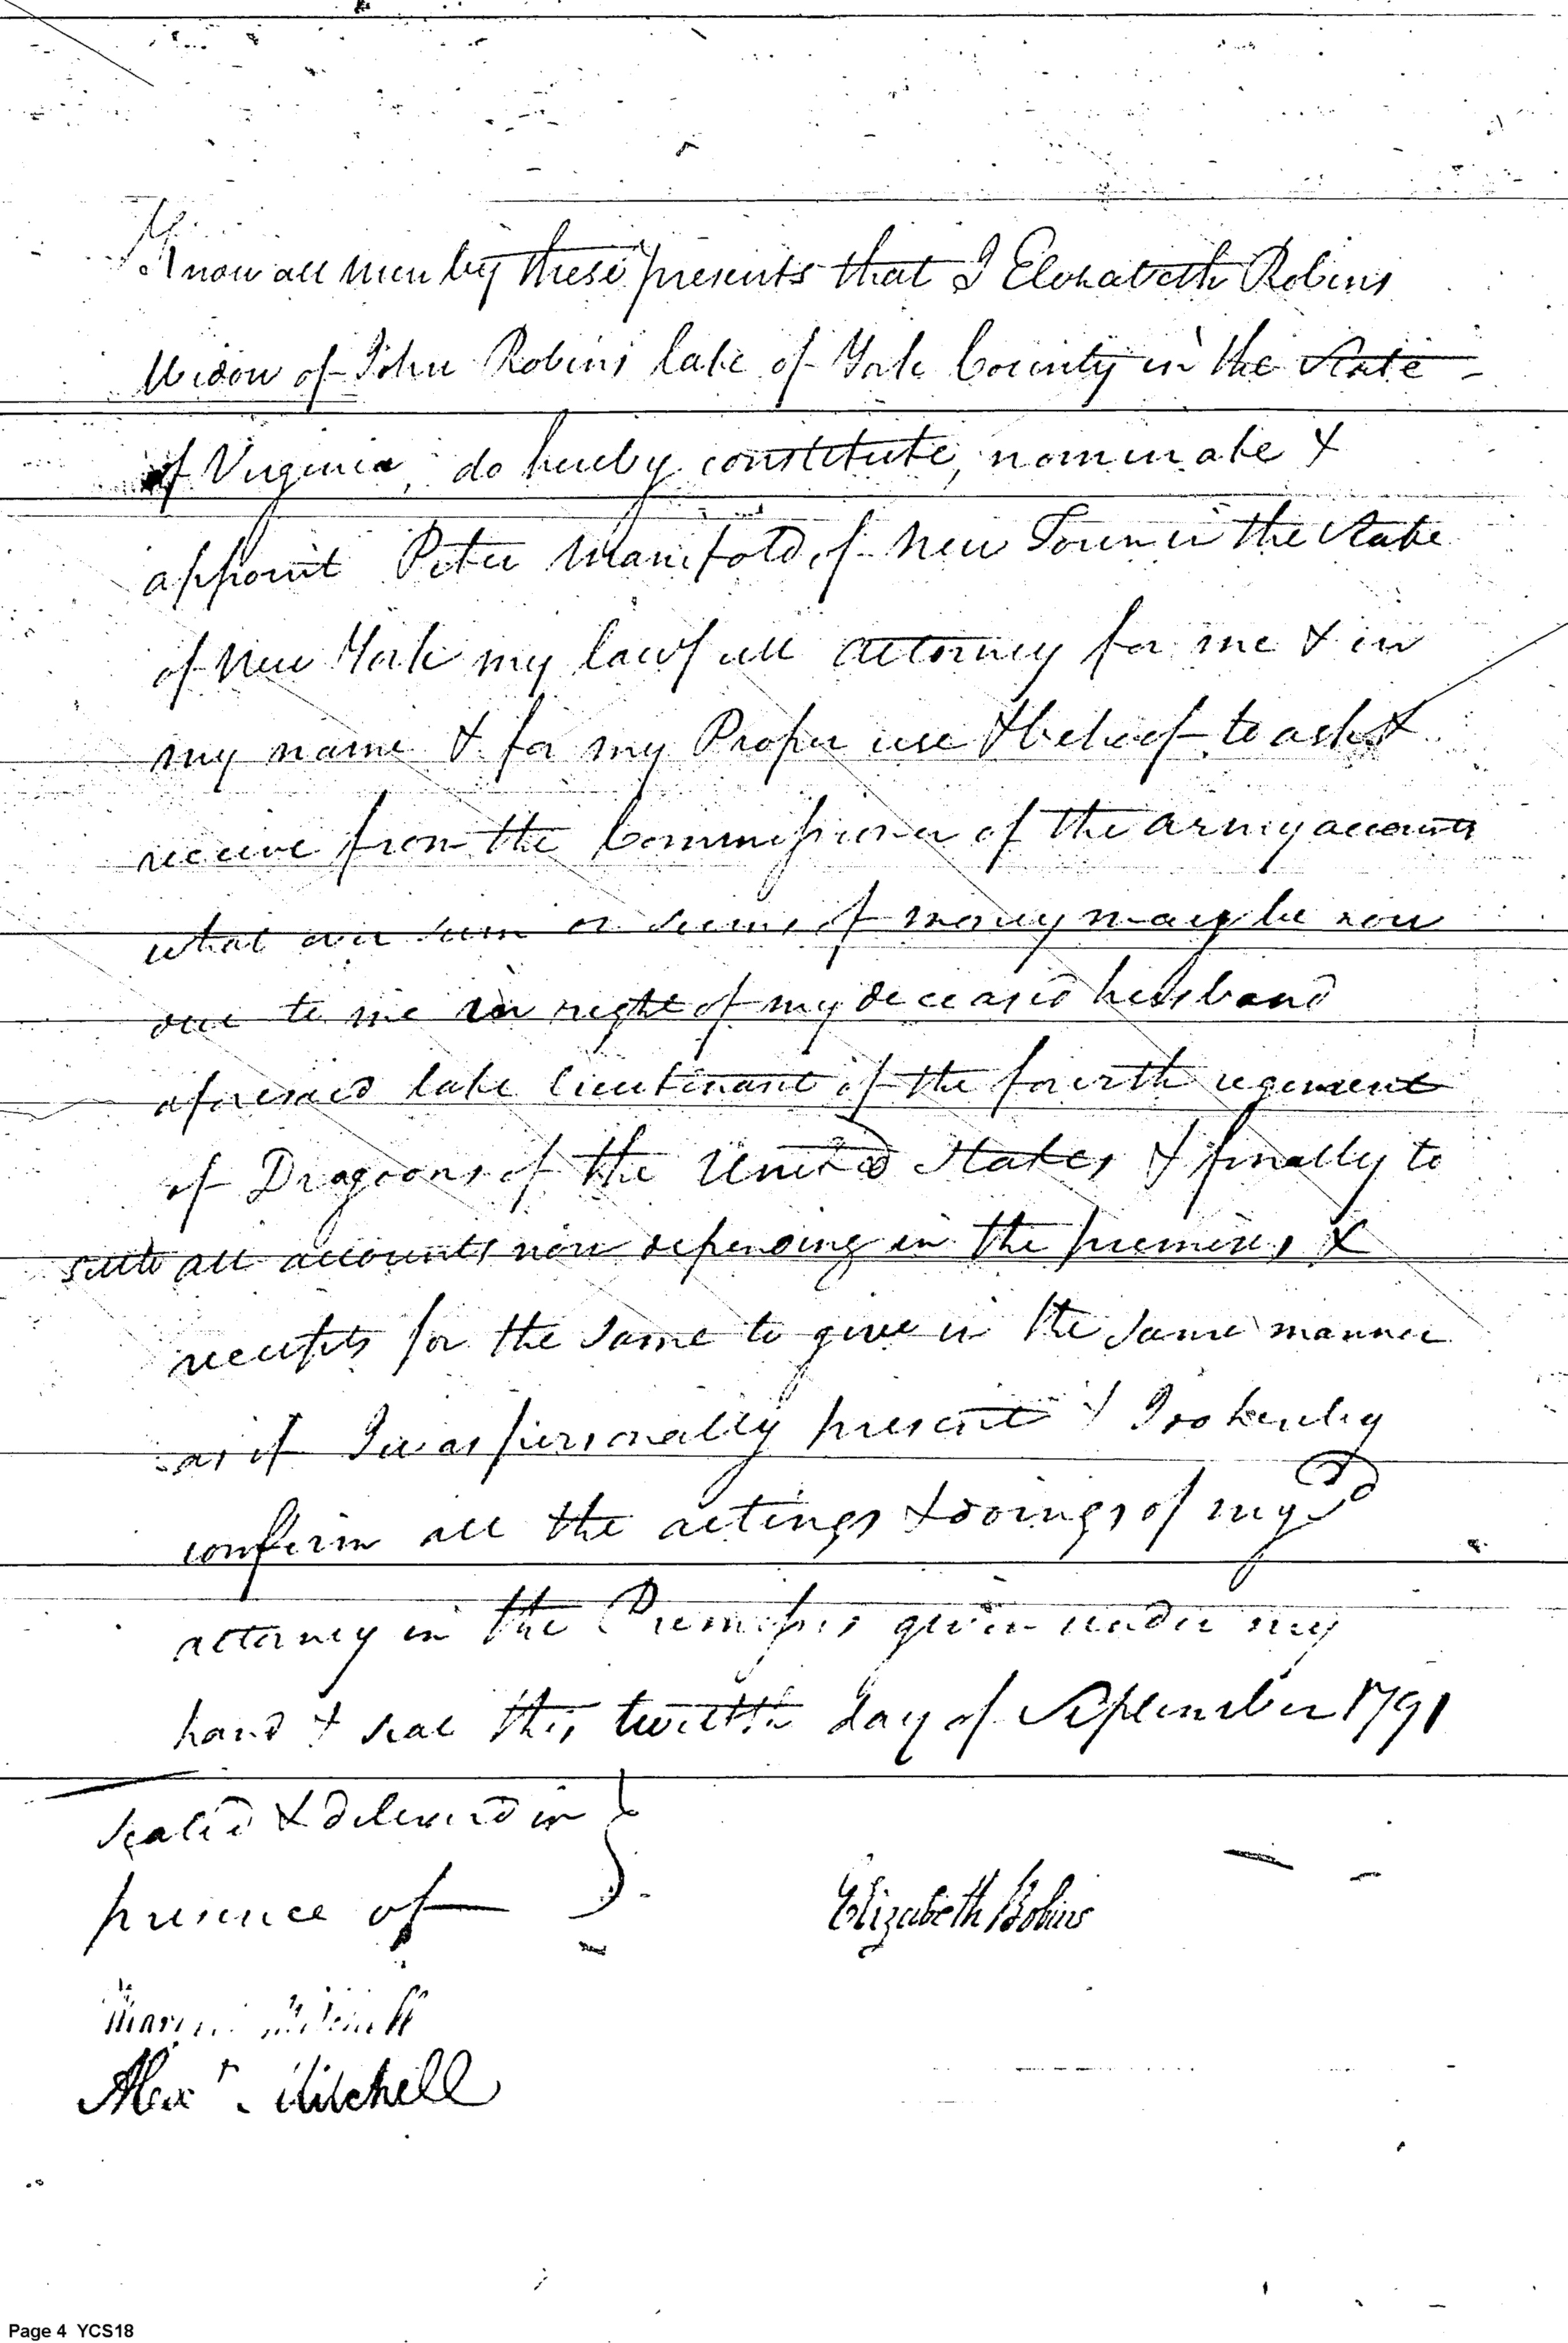 Know all men by these presents that I Elizabeth Robins
Widow of John Robins late of York County in the State
of Virginia, do hereby constitute, nominate &
appoint Peter Manifold of New Town in the State
of New York my lawfull attorney for me & in
my name & for my Proper use & behoof to ask &
receive from the Commissioner of the army accounts
what ever sum or sums of money may be now
due to me in right of my deceased husband
aforesaid late lieutinant of the fourth regiment
of Dragoons of the United States & finally to
settle all accounts now depending in the premises, &
receipts for the same to give in the same manner
as if I was personally present & I do hereby
confirm all the actings & doings of my sd
attorney in the Premises given under my
hand & seal this twelfth day of September 1791
sealed & delivered in
presence of
Elizabeth Robins
Mitchell
Alexr. Mitchell
Page 4 YCS18